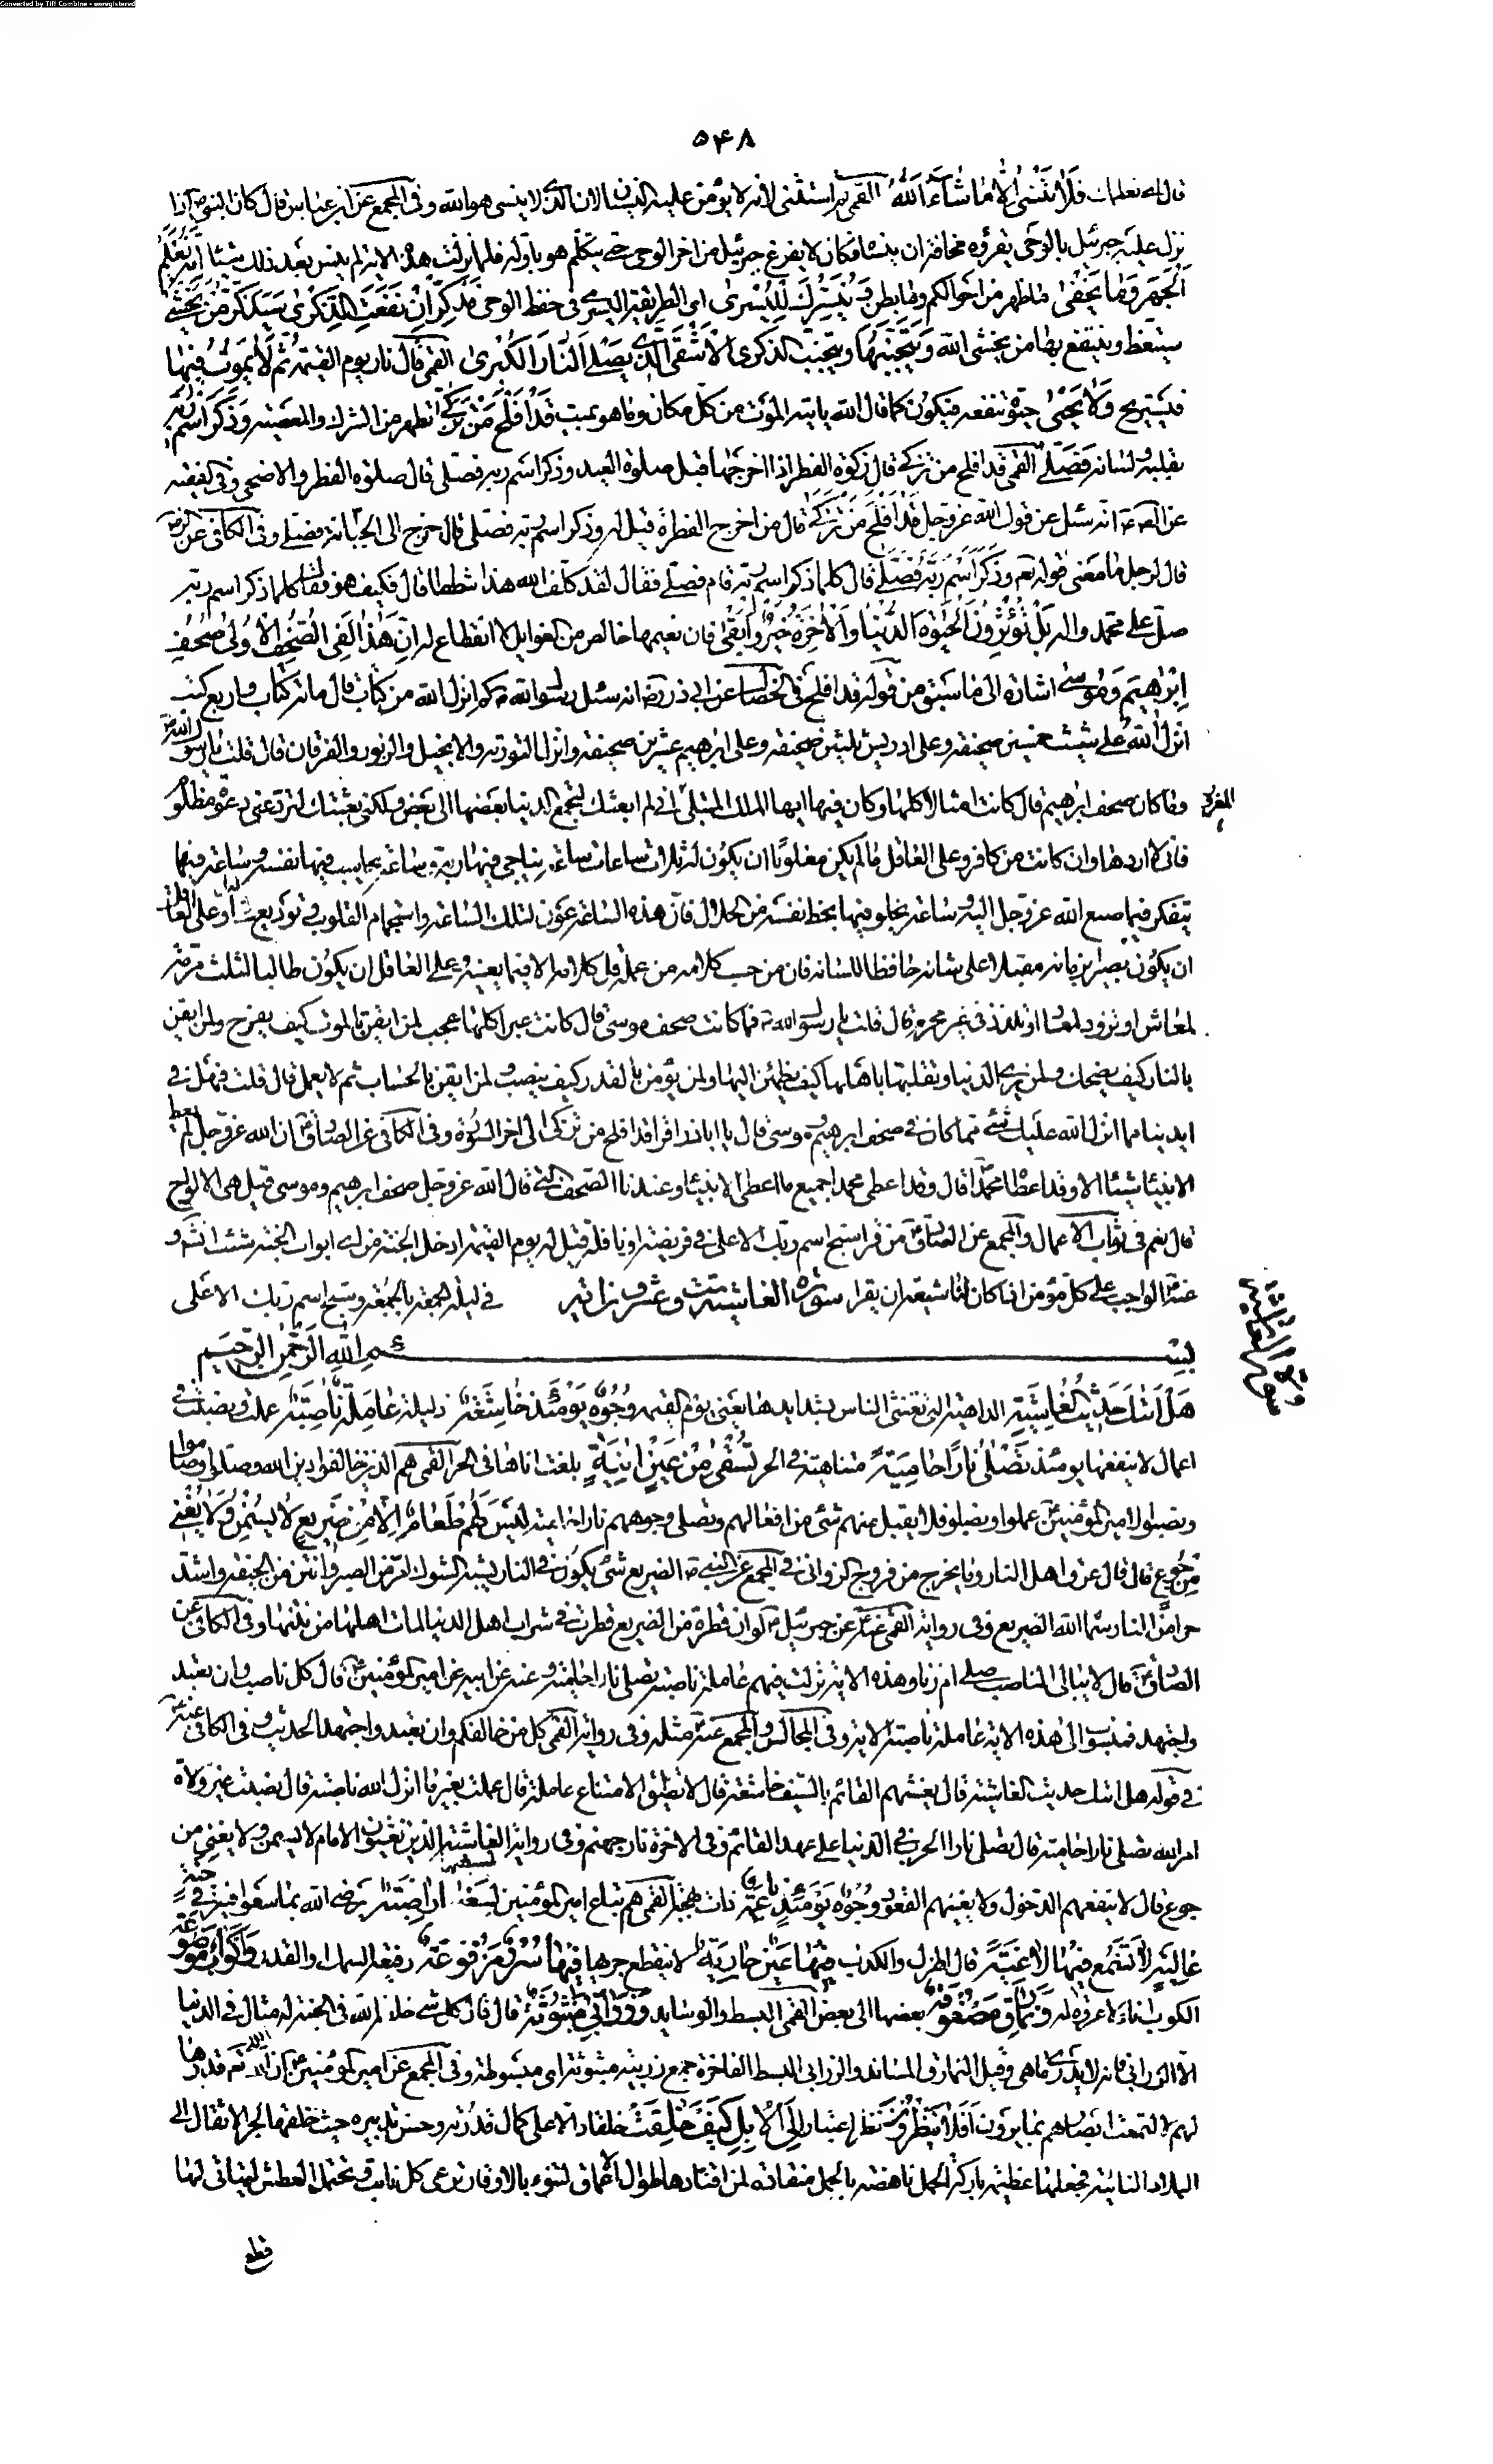 Converted by Tiff Combine - unregistered
۵۴۸
قال اى نعلمك فَلَا تَنْسٰى اِلَّا مَا شَاءَ اللّٰهُ القمى ثم استثنى لانه لا يؤمن عليه النسيان لان الذى لا ينسى هو الله وفى المجمع عن ابن عباس قال كان النبى ص اذا
نزل عليه جبرئيل بالوحى يقرؤه مخافة ان ينساه فكان لا يفرغ جبرئيل من اخر الوحى حتى يتكلم هو باوله فلما نزلت هذه الاية لم ينس بعد ذلك شيئا اِنَّهُ يَعْلَمُ
الْجَهْرَ وَمَا يَخْفٰى ما ظهر من احوالكم وما بطن وَ نُيَسِّرُكَ لِلْيُسْرٰى اى الطريقة اليسرى فى حفظ الوحى فَذَكِّرْ اِنْ نَفَعَتِ الذِّكْرٰى سَيَذَّكَّرُ مَنْ يَخْشٰى
سيتعظ وينتفع بها من يخشى الله وَ يَتَجَنَّبُهَا ويتجنب الذكرى الْاَشْقَى الَّذِى يَصْلَى النَّارَ الْكُبْرٰى القمى قال نار يوم القيمة ثُمَّ لَا يَمُوتُ فِيهَا
فيستريح وَلَا يَحْيٰى حيوة تنفعه فيكون كما قال الله ياتيه الموت من كل مكان وما هو بميت قَدْ اَفْلَحَ مَنْ تَزَكّٰى تطهر من الشرك والمعصية وَ ذَكَرَ اسْمَ رَبِّهِ
بقلبه ولسانه فَصَلّٰى القمى قد افلح من تزكى قال زكوة الفطر اذا اخرجها قبل صلوة العيد وذكر اسم ربه فصلى قال صلوة الفطر والاضحى وفى الفقيه
عن الصادق ع انه سئل عن قول الله عز وجل قَدْ اَفْلَحَ مَنْ تَزَكّٰى قال من اخرج الفطرة قيل له وذكر اسم ربه فصلى قال خرج الى الجبانة فصلى وفى الكافى عن الرضا ع
قال لرجل ما معنى قوله تعم وَذَكَرَ اسْمَ رَبِّهِ فَصَلّٰى قال كلما ذكر اسم ربه قام فصلى فقال لقد كلف الله هذا شططا قال فكيف هو فقال كلما ذكر اسم ربه
صلى على محمد واله بَلْ تُؤْثِرُونَ الْحَيٰوةَ الدُّنْيَا وَالْاٰخِرَةُ خَيْرٌ وَاَبْقٰى فان نعيمها خالص من الغوايل لا انقطاع له اِنَّ هٰذَا لَفِى الصُّحُفِ الْاُولٰى صُحُفِ
اِبْرٰهِيمَ وَمُوسٰى اشارة الى ما سبق من قوله قد افلح فى الخصال عن ابى ذر رض انه سئل رسول الله ص كم انزل الله من كتاب قال مائة كتاب واربع كتب
انزل الله على شيث خمسين صحيفة وعلى ادريس ثلثين صحيفة وعلى ابرهيم عشرين صحيفة وانزل التورية والانجيل والزبور والفرقان قال قلت يا رسول الله
وما كان صحف ابرهيم قال كانت امثالا كلها وكان فيها ايها الملك المبتلى انى لم ابعثك لتجمع الدنيا بعضها الى بعض ولكنى بعثتك لترد عنى دعوة مظلوم
المغرور
فانى لا اردها وان كانت من كافر وعلى العاقل ما لم يكن مغلوبا ان يكون له ثلاث ساعات ساعة يناجى فيها ربه وساعة يحاسب فيها نفسه وساعة فيها
يتفكر فيما صنع الله عز وجل اليه وساعة يخلو فيها بحظ نفسه من الحلال فان هذه الساعة عون لتلك الساعة واستجمام القلوب وتوديع لها وعلى العاقل
ان يكون بصيرا بزمانه مقبلا على شانه حافظا للسانه فان من حسب كلامه من عمله قل كلامه الا فيما يعنيه وعلى العاقل ان يكون طالبا لثلث مرمة
لمعاش او تزود لمعاد او تلذذ فى غير محرم قال قلت يا رسول الله ص فما كانت صحف موسى قال كانت عبرا كلها عجب لمن ايقن بالموت كيف يفرح ولمن ايقن
بالنار كيف يضحك ولمن يرى الدنيا وتقلبها باهلها كيف يطمئن اليها ولمن يؤمن بالقدر كيف ينصب ولمن ايقن بالحساب ثم لا يعمل قال قلت فهل فى
ايدينا مما انزل الله عليك شئ مما كان فى صحف ابرهيم وموسى قال يا اباذر اقرأ قد افلح من تزكى الى اخر السورة وفى الكافى عن الصادق ع ان الله عز وجل لم يعط
الانبياء شيئا الا وقد اعطاه محمدا قال وقد اعطى محمدا جميع ما اعطى الانبياء وعندنا الصحف التى قال الله عز وجل صحف ابرهيم وموسى قيل هى الالواح
قال نعم فى ثواب الاعمال والمجمع عن الصادق ع من قرأ سبح اسم ربك الاعلى فى فريضة او نافلة قيل له يوم القيمة ادخل الجنة من اى ابواب الجنة شئت انشء و
عنه ع الواجب على كل مؤمن اذا كان لنا شيعة ان يقرأ سورة الغاشية ست وعشرون اية فى ليلة الجمعة بالجمعة وسبح اسم ربك الاعلى
بسم الله الرحمن الرحيم
هَلْ اَتٰكَ حَدِيثُ الْغَاشِيَةِ الداهية التى تغشى الناس بشدايدها يعنى يوم القيمة وُجُوهٌ يَوْمَئِذٍ خَاشِعَةٌ ذليلة عَامِلَةٌ نَاصِبَةٌ عملت ونصبت فى
اعمال لا ينفعها يومئذ تَصْلٰى نَارًا حَامِيَةً متناهية فى الحر تُسْقٰى مِنْ عَيْنٍ اٰنِيَةٍ بلغت اناها فى الحر القمى هم الذين خالفوا دين الله وصلوا وصاموا
ونصبوا لامير المؤمنين ع عملوا ونصبوا فلا يقبل منهم شئ من افعالهم وتصلى وجوههم نارا حامية لَيْسَ لَهُمْ طَعَامٌ اِلَّا مِنْ ضَرِيعٍ لَا يُسْمِنُ وَلَا يُغْنِى
مِنْ جُوعٍ قال قال عرق اهل النار وما يخرج من فروج الزوانى فى المجمع عن النبى ص الضريع شئ يكون فى النار يشبه الشوك امر من الصبر وانتن من الجيفة واشد
حرا من النار سماه الله الضريع وفى رواية القمى عنه ع عن جبرئيل ع لو ان قطرة من الضريع قطرت فى شراب اهل الدنيا لمات اهلها من نتنها وفى الكافى عن
الصادق ع قال لا يبالى الناصب صلى ام زنا وهذه الاية نزلت فيهم عاملة ناصبة تصلى نارا حامية وعنه عن ابيه عن امير المؤمنين ع قال كل ناصب وان تعبد
واجتهد فمنسوب الى هذه الاية عاملة ناصبة الاية وفى المجالس والمجمع عنه ع مثله وفى رواية القمى كل من خالفكم وان تعبد واجتهد الحديث وفى الكافى عنه ع
فى قوله هل اتك حديث الغاشية قال يغشيهم القائم بالسيف خاشعة قال لا تطيق الامتناع عاملة قال عملت بغير ما انزل الله ناصبة قال نصبت غير ولاة
امر الله تصلى نارا حامية قال تصلى نارا الحرب فى الدنيا على عهد القائم وفى الاخرة نار جهنم وفى رواية الغاشية الذين يغشون الامام لا يسمن ولا يغنى من
جوع قال لا ينفعهم الدخول ولا يغنيهم القعود وُجُوهٌ يَوْمَئِذٍ نَاعِمَةٌ ذات بهجة القمى هم اتباع امير المؤمنين لِسَعْيِهَا رَاضِيَةٌ يرضى الله بما سعوا فيه فِى جَنَّةٍ
عَالِيَةٍ لَا تَسْمَعُ فِيهَا لَاغِيَةً قال الهزل والكذب فِيهَا عَيْنٌ جَارِيَةٌ لا ينقطع جريها فِيهَا سُرُرٌ مَرْفُوعَةٌ رفيعة السمك والقدر وَاَكْوَابٌ مَوْضُوعَةٌ
الكوب اناء لا عروة له وَ نَمَارِقُ مَصْفُوفَةٌ بعضها الى بعض القمى البسط والوسايد وَ زَرَابِىُّ مَبْثُوثَةٌ قال قال كل شئ خلقه الله فى الجنة له مثال فى الدنيا
الا الزرابى فانه لا يدرى ما هى وقيل النمارق المساند والزرابى البسط الفاخرة جمع زربية مبثوثة اى مبسوطة وفى المجمع عن امير المؤمنين ع لولا ان الله تعم قدرها
لهم لالتمعت ابصارهم بما يرون اَفَلَا يَنْظُرُونَ نظر اعتبار اِلَى الْاِبِلِ كَيْفَ خُلِقَتْ خلقا دالا على كمال قدرته وحسن تدبيره حيث خلقها لجر الاثقال الى
البلاد النائية فجعلها عظيمة باركة للحمل ناهضة بالحمل منقادة لمن اقتادها طوال الاعناق لتنوء بالاوقار ترعى كل نابت وتحتمل العطش ليتاتى لها
قطع